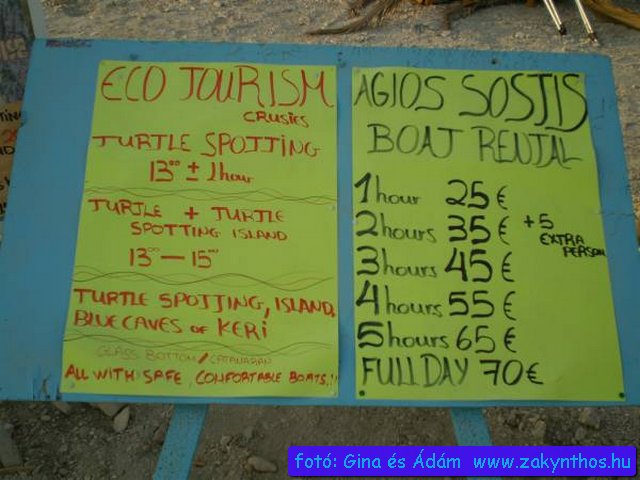 ECO TOURISM
CRUSIES
TURTLE SPOTTING
13⁰⁰ ± 1 hour
TURTLE + TURTLE
SPOTTING ISLAND
13⁰⁰ — 15⁰⁰
TURTLE SPOTTING, ISLAND,
BLUE CAVES OF KERI
GLASS BOTTOM/CATAMARAN
ALL WITH SAFE, COMFORTABLE BOATS!!
AGIOS SOSTIS
BOAT RENTAL
1 hour 25€
2 hours 35€ +5 EXTRA PERSON
3 hours 45€
4 hours 55€
5 hours 65€
FULL DAY 70€
fotó: Gina és Ádám www.zakynthos.hu